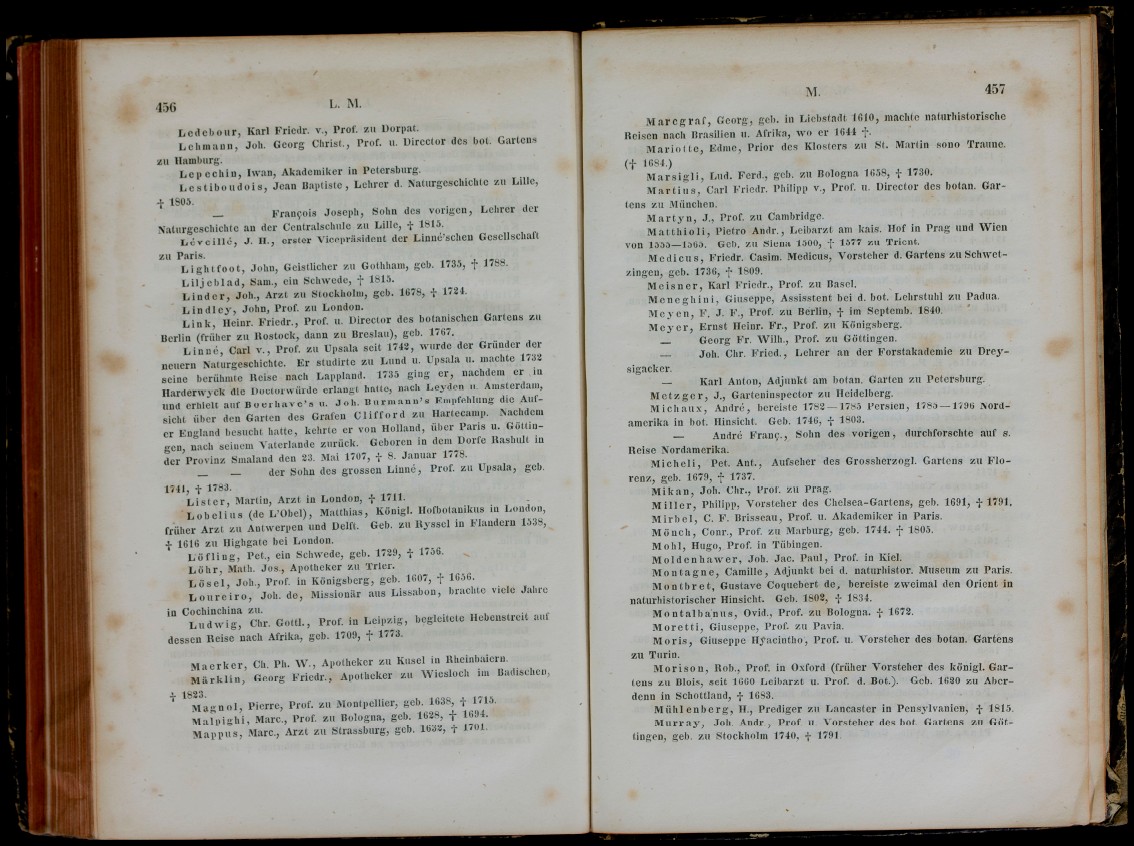 456
L. M.
Ledebour, Karl Friedr. v., Prof. zu Dorpat.
Lehmann, Joh. Georg Christ., Prof. u. Director des bot. Gartens
zu Hamburg.
Lepechin, Iwan, Akademiker in Petersburg.
Lestiboudois, Jean Baptiste, Lehrer d. Naturgeschichte zu Lille,
† 1805.
— François Joseph, Sohn des vorigen, Lehrer der
Naturgeschichte an der Centralschule zu Lille, † 1815.
Léveillé, J. H., erster Vicepräsident der Linné'schen Gesellschaft
zu Paris.
Lightfoot, John, Geistlicher zu Gothham, geb. 1735, † 1788.
Liljeblad, Sam., ein Schwede, † 1815.
Linder, Joh., Arzt zu Stockholm, geb. 1678, † 1724.
Lindley, John, Prof. zu London.
Link, Heinr. Friedr., Prof. u. Director des botanischen Gartens zu
Berlin (früher zu Rostock, dann zu Breslau), geb. 1767.
Linné, Carl v., Prof. zu Upsala seit 1742, wurde der Gründer der
neuern Naturgeschichte. Er studirte zu Lund u. Upsala u. machte 1732
seine berühmte Reise nach Lappland. 1735 ging er, nachdem er in
Harderwyck die Doctorwürde erlangt hatte, nach Leyden u. Amsterdam,
und erhielt auf Boerhave's u. Joh. Burmann's Empfehlung die Auf-
sicht über den Garten des Grafen Clifford zu Hartecamp. Nachdem
er England besucht hatte, kehrte er von Holland, über Paris u. Göttin-
gen, nach seinem Vaterlande zurück. Geboren in dem Dorfe Rashult in
der Provinz Smaland den 23. Mai 1707, † 8. Januar 1778.
— — der Sohn des grossen Linné, Prof. zu Upsala, geb.
1741, † 1783.
Lister, Martin, Arzt in London, † 1711.
Lobelius (de L'Obel), Matthias, Königl. Hofbotanikus in London,
früher Arzt zu Antwerpen und Delft. Geb. zu Ryssel in Flandern 1538,
† 1616 zu Highgate bei London.
Löfling, Pet., ein Schwede, geb. 1729, † 1756.
Löhr, Math. Jos., Apotheker zu Trier.
Lösel, Joh., Prof. in Königsberg, geb. 1607, † 1656.
Loureiro, Joh. de, Missionär aus Lissabon, brachte viele Jahre
in Cochinchina zu.
Ludwig, Chr. Gottl., Prof. in Leipzig, begleitete Hebenstreit auf
dessen Reise nach Afrika, geb. 1709, † 1773.
Maerker, Ch. Ph. W., Apotheker zu Kusel in Rheinbaiern.
Märklin, Georg Friedr., Apotheker zu Wiesloch im Badischen,
† 1823.
Magnol, Pierre, Prof. zu Montpellier, geb. 1638, † 1715.
Malpighi, Marc., Prof. zu Bologna, geb. 1628, † 1694.
Mappus, Marc., Arzt zu Strassburg, geb. 1632, † 1701.
M.
457
Marcgraf, Georg, geb. in Liebstadt 1610, machte naturhistorische
Reisen nach Brasilien u. Afrika, wo er 1644 †.
Mariotte, Edme, Prior des Klosters zu St. Martin sono Traune.
(† 1684.)
Marsigli, Lud. Ferd., geb. zu Bologna 1658, † 1730.
Martius, Carl Friedr. Philipp v., Prof. u. Director des botan. Gar-
tens zu München.
Martyn, J., Prof. zu Cambridge.
Matthioli, Pietro Andr., Leibarzt am kais. Hof in Prag und Wien
von 1555—1565. Geb. zu Siena 1500, † 1577 zu Trient.
Medicus, Friedr. Casim. Medicus, Vorsteher d. Gartens zu Schwet-
zingen, geb. 1736, † 1809.
Meisner, Karl Friedr., Prof. zu Basel.
Meneghini, Giuseppe, Assisstent bei d. bot. Lehrstuhl zu Padua.
Meyen, F. J. F., Prof. zu Berlin, † im Septemb. 1840.
Meyer, Ernst Heinr. Fr., Prof. zu Königsberg.
— Georg Fr. Wilh., Prof. zu Göttingen.
— Joh. Chr. Fried., Lehrer an der Forstakademie zu Drey-
sigacker.
— Karl Anton, Adjunkt am botan. Garten zu Petersburg.
Metzger, J., Garteninspector zu Heidelberg.
Michaux, André, bereiste 1782—1785 Persien, 1785—1796 Nord-
amerika in bot. Hinsicht. Geb. 1746, † 1803.
— André Franç., Sohn des vorigen, durchforschte auf s.
Reise Nordamerika.
Micheli, Pet. Ant., Aufseher des Grossherzogl. Gartens zu Flo-
renz, geb. 1679, † 1737.
Mikan, Joh. Chr., Prof. zu Prag.
Miller, Philipp, Vorsteher des Chelsea-Gartens, geb. 1691, † 1791.
Mirbel, C. F. Brisseau, Prof. u. Akademiker in Paris.
Mönch, Conr., Prof. zu Marburg, geb. 1744. † 1805.
Mohl, Hugo, Prof. in Tübingen.
Moldenhawer, Joh. Jac. Paul, Prof. in Kiel.
Montagne, Camille, Adjunkt bei d. naturhistor. Museum zu Paris.
Montbret, Gustave Coquebert de, bereiste zweimal den Orient in
naturhistorischer Hinsicht. Geb. 1802, † 1834.
Montalbanus, Ovid., Prof. zu Bologna. † 1672.
Moretti, Giuseppe, Prof. zu Pavia.
Moris, Giuseppe Hyacintho, Prof. u. Vorsteher des botan. Gartens
zu Turin.
Morison, Rob., Prof. in Oxford (früher Vorsteher des königl. Gar-
tens zu Blois, seit 1660 Leibarzt u. Prof. d. Bot.). Geb. 1620 zu Aber-
denn in Schottland, † 1683.
Mühlenberg, H., Prediger zu Lancaster in Pensylvanien, † 1815.
Murray, Joh. Andr., Prof. u. Vorsteher des bot. Gartens zu Göt-
tingen, geb. zu Stockholm 1740, † 1791.